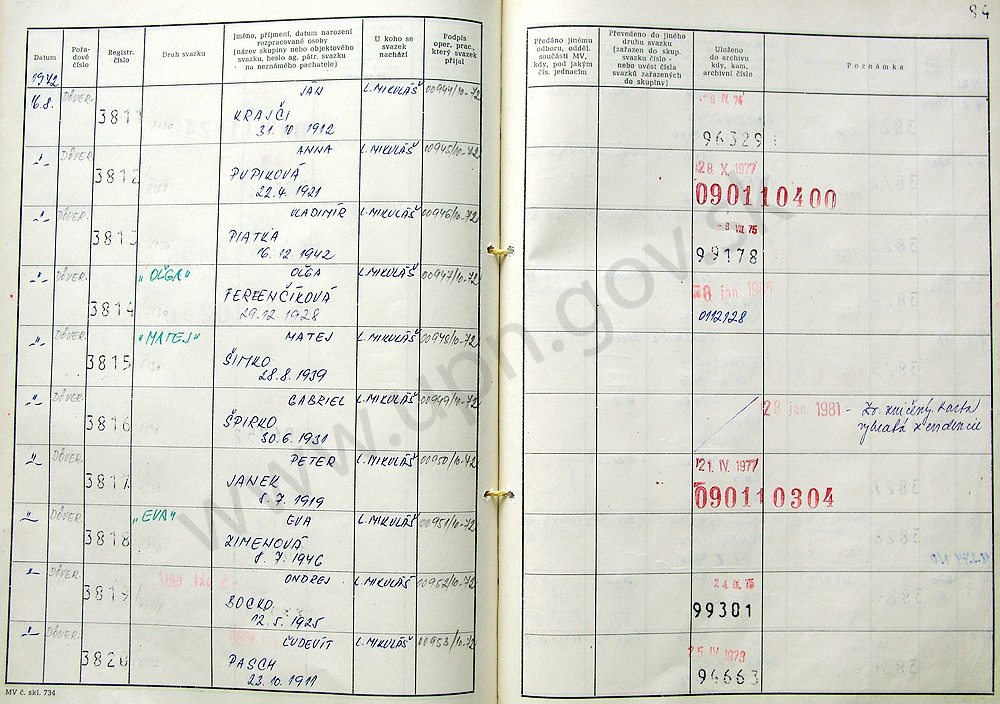 94
Datum
Pořa-
dové
číslo
Registr.
číslo
Druh svazku
Jméno, příjmení, datum narození
rozpracované osoby
(název skupiny nebo objektového
svazku, heslo ag. pátr. svazku
na neznámého pachatele)
U koho se
svazek
nachází
Podpis
oper. prac.,
který svazek
přijal
Předáno jinému
odboru, odděl.
součásti MV,
kdy, pod jakým
čís. jednacím
Převedeno do jiného
druhu svazku
(zařazen do skup.
svazku číslo -
nebo uvést čísla
svazků zařazených
do skupiny)
Uloženo
do archivu
kdy, kam,
archivní číslo
Poznámka
1972
16.8. DÔVER. 3811 JAN L. MIKULÁŠ 00944/10-72
KRAJČI
31. 10. 1912
96329
-"- DÔVER. 3812 ANNA L. MIKULÁŠ 00945/10-72 28. X. 1977
PUPIKOVÁ 090110400
22.4. 1921
-"- DÔVER. 3813 VLADIMÍR L. MIKULÁŠ 00946/10-72 -8 VII. 75
PIATKA 99178
16. 12. 1942
-"- DÔVER. 3814 "OĽGA" OĽGA L. MIKULÁŠ 00947/10-72
FERENČÍKOVÁ 0112128
29.12. 1928
-"- DÔVER. 3815 "MATEJ" MATEJ L. MIKULÁŠ 00948/10-72
ŠIMKO
28.8. 1939
-"- DÔVER. 3816 GABRIEL L. MIKULÁŠ 00949/10-72 28 jan. 1981 - Zv. zničený. Karta
ŠPIRKO vybratá z evidencie
30. 6. 1931
-"- DÔVER. 3817 PETER L. MIKULÁŠ 00950/10-72 21. IV. 1977
JANEK 090110304
8. 7. 1919
-"- DÔVER. 3818 "EVA" EVA L. MIKULÁŠ 00951/10-72
ZIMENOVÁ
8. 7. 1946
-"- DÔVER. 3819 ONDREJ L. MIKULÁŠ 00952/10-72
BOCKO 99301
12. 5. 1925
-"- DÔVER. 3820 ĽUDEVÍT L. MIKULÁŠ 00953/10-72 25. IV. 1973
PASCH 94663
23. 10. 1911
MV č. skl. 734
www.upn.gov.sk